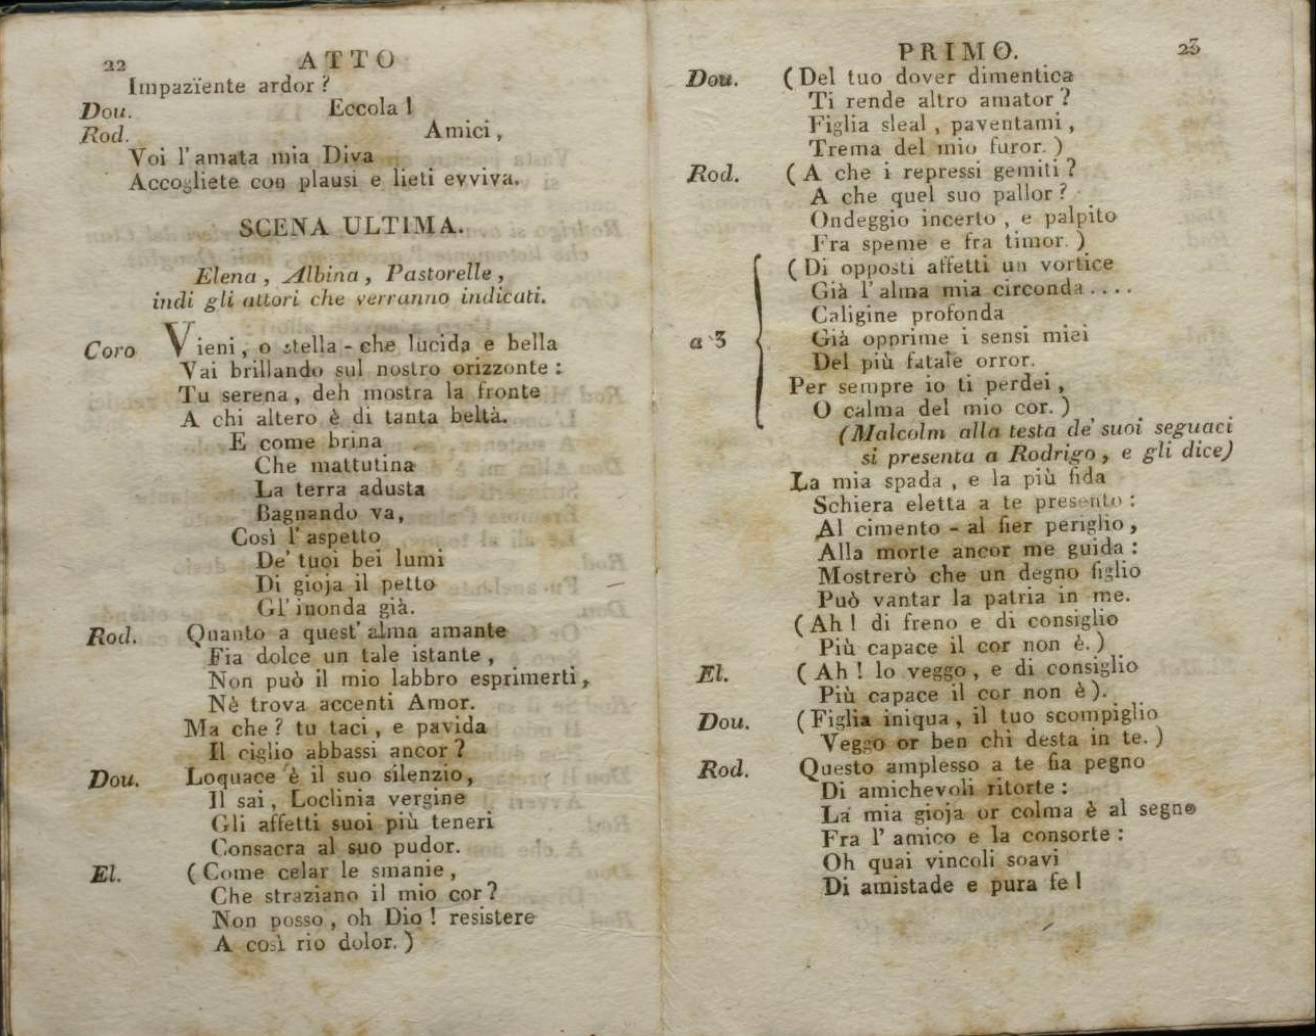 22
ATTO
Impazïente ardor ?
Dou. Eccola !
Rod. Amici ,
Voi l'amata mia Diva
Accogliete con plausi e lieti evviva.
SCENA ULTIMA.
Elena , Albina , Pastorelle ,
indi gli attori che verranno indicati.
Coro Vieni , o stella - che lucida e bella
Vai brillando sul nostro orizzonte :
Tu serena , deh mostra la fronte
A chi altero è di tanta beltà.
E come brina
Che mattutina
La terra adusta
Bagnando va,
Così l' aspetto
De' tuoi bei lumi
Di gioja il petto
Gl' inonda già.
Rod. Quanto a quest' alma amante
Fia dolce un tale istante ,
Non può il mio labbro esprimerti ,
Nè trova accenti Amor.
Ma che ? tu taci , e pavida
Il ciglio abbassi ancor ?
Dou. Loquace è il suo silenzio ,
Il sai , Loclinia vergine
Gli affetti suoi più teneri
Consacra al suo pudor.
El. ( Come celar le smanie ,
Che straziano il mio cor ?
Non posso , oh Dio ! resistere
A così rio dolor. )
PRIMO.
23
Dou. ( Del tuo dover dimentica
Ti rende altro amator ?
Figlia sleal , paventami ,
Trema del mio furor. )
Rod. ( A che i repressi gemiti ?
A che quel suo pallor ?
Ondeggio incerto , e palpito
Fra speme e fra timor. )
( Di opposti affetti un vortice
Già l' alma mia circonda . . . .
Caligine profonda
a 3 Già opprime i sensi miei
Del più fatale orror.
Per sempre io ti perdei ,
O calma del mio cor. )
(Malcolm alla testa de' suoi seguaci
si presenta a Rodrigo , e gli dice)
La mia spada , e la più fida
Schiera eletta a te presento :
Al cimento - al fier periglio ,
Alla morte ancor me guida :
Mostrerò che un degno figlio
Può vantar la patria in me.
( Ah ! di freno e di consiglio
Più capace il cor non è. )
El. ( Ah ! lo veggo , e di consiglio
Più capace il cor non è ).
Dou. (Figlia iniqua , il tuo scompiglio
Veggo or ben chi desta in te. )
Rod. Questo amplesso a te fia pegno
Di amichevoli ritorte :
La mia gioja or colma è al segno
Fra l' amico e la consorte :
Oh quai vincoli soavi
Di amistade e pura fe !